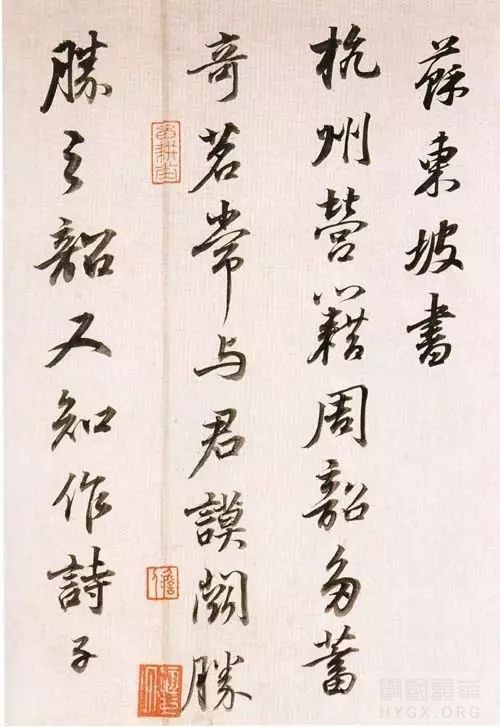 蘇東坡書
杭州營籍周韶多蓄
奇茗常与君謨鬪勝
勝之韶又知作詩子
華韻國學
HYGX.ORG